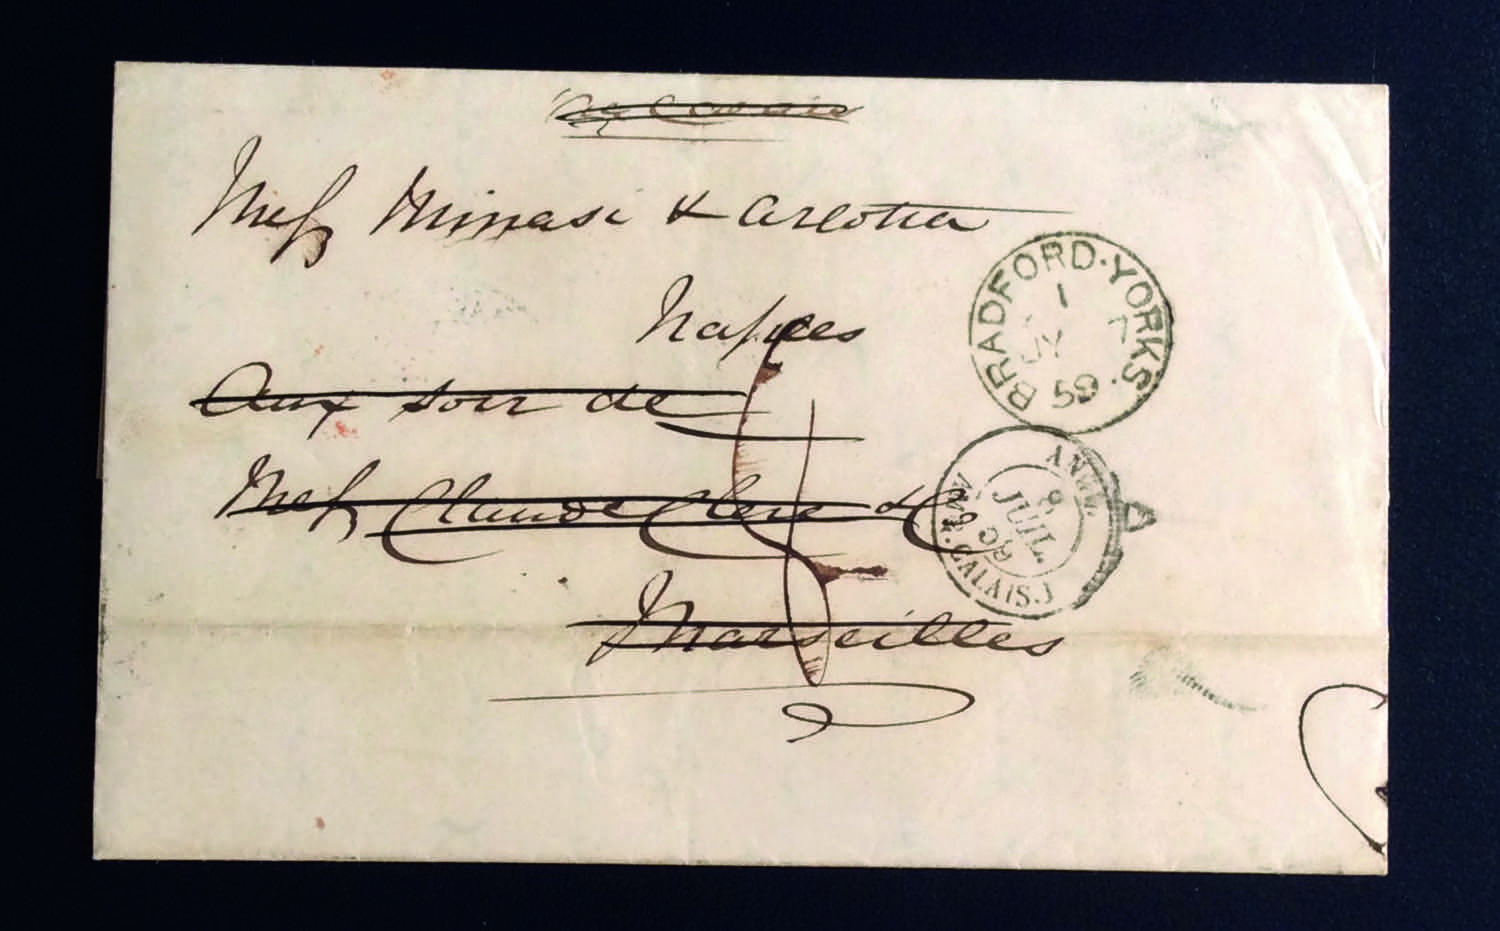 Mess Minasi & Arlotta
Naples
Aux soin de
Mess Claude Clerc & C
Marseilles
BRADFORD·YORKS·
1
JY 7
59
ANGL.
8
JUIL.
59
AMB. CALAIS. J